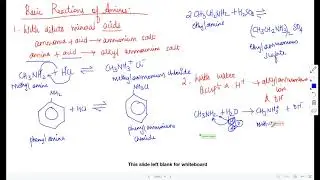 Basic Reactions of Amines:
1. With dilute mineral acids
ammonia + acid → ammonium salt
amine + acid → alkyl ammonium salt
CH₃NH₂ + HCl ⇌ CH₃NH₃⁺ Cl⁻
Methyl amine
methyl ammonium chloride
NH₂
+ HCl ⇌
NH₃Cl
phenyl amine
phenyl ammonium
chloride
2 CH₃CH₂NH₂ + H₂SO₄ ⇌
ethyl amine
(CH₃CH₂NH₃)₂ SO₄
ethyl ammonium
sulfate
2. With water
Accepts a H⁺ → alkyl ammonium
ion
& OH⁻
CH₃NH₂ + H₂O ⇌ CH₃NH₃⁺ + OH⁻
This slide left blank for whiteboard